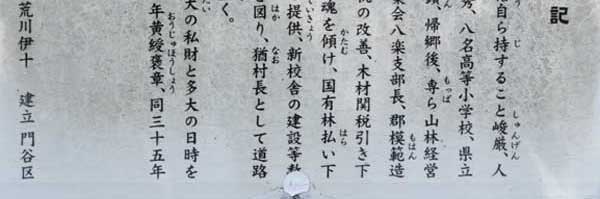 記
自ら持すること峻厳、人
秀、八名高等小学校、県立
帰郷後、専ら山林経営
業会八楽支部長、郡模範造
の改善、木材関税引き下
魂を傾け、国有林払い下
提供、新校舎の建設等
を図り、猶村長として道路
く。
大の私財と多大の日時を
年黄綬褒章、同三十五年
荒川伊十 建立 門谷区